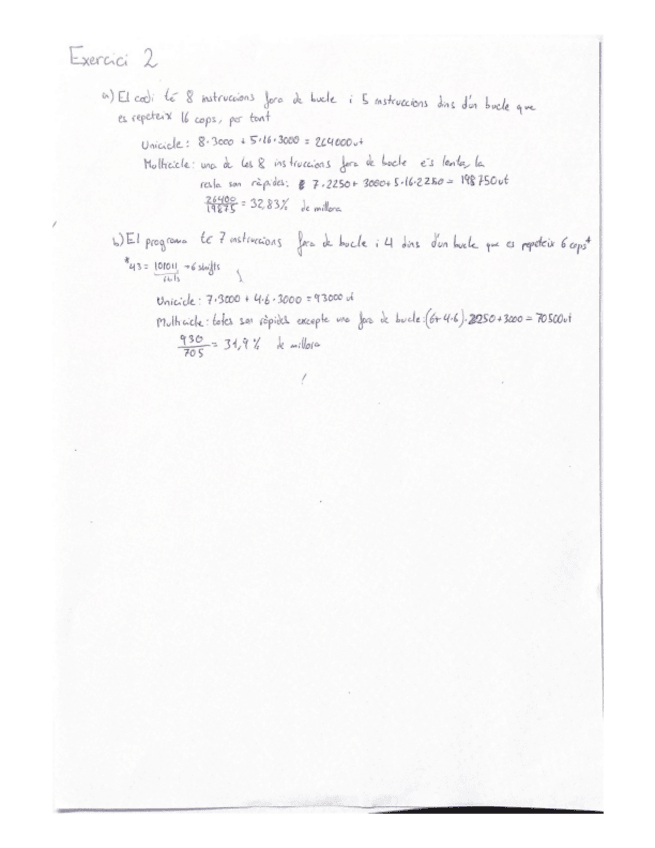 Exercici 2
a) El codi té 8 instruccions fora de bucle i 5 instruccions dins d'un bucle que
es repeteix 16 cops, per tant
Unicicle: 8·3000 + 5·16·3000 = 264000ut
Multicicle: una de les 8 instruccions fora de bucle és lenta, la
resta son ràpides: 7·2250 + 3000 + 5·16·2250 = 198750ut
26400/19875 = 32,83% de millora
b) El programa té 7 instruccions fora de bucle i 4 dins d'un bucle que es repeteix 6 cops*
*43 = 101011 → 6 shifts
Unicicle: 7·3000 + 4·6·3000 = 93000 ut
Multicicle: totes son ràpides excepte una fora de bucle: (6+4·6)·2250+3000 = 70500ut
930/705 = 31,9% de millora